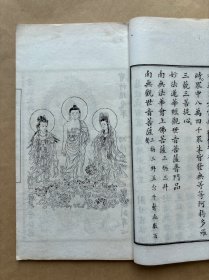 時眾中八萬四千眾生皆發無等等阿耨多羅
三藐三菩提心
妙法蓮華經觀世音菩薩普門品
南無法華會上佛菩薩 三稱三拜
南無觀世音菩薩